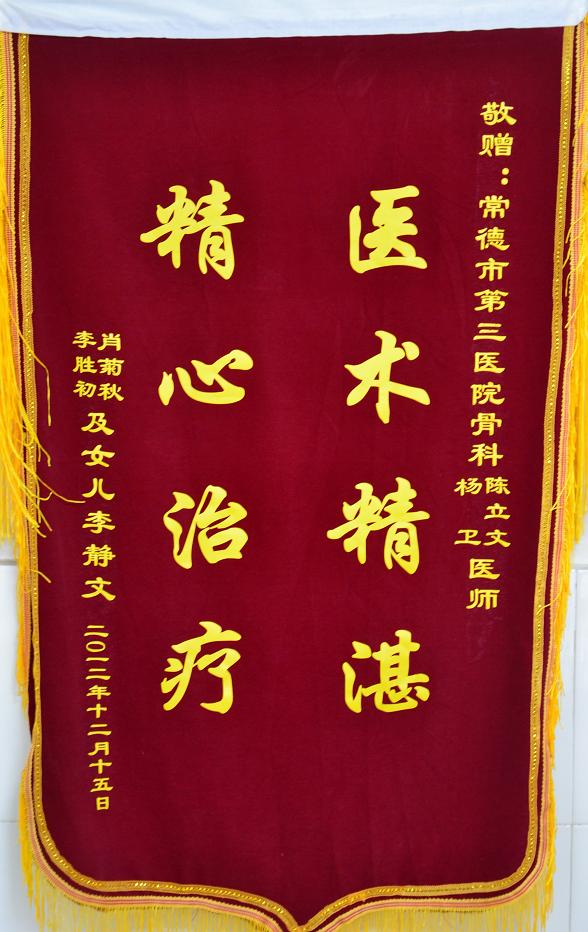 敬赠：常德市第三医院骨科陈立文杨卫医师
医术精湛
精心治疗
肖菊秋李胜初及女儿李静文
二〇一二年十二月十五日